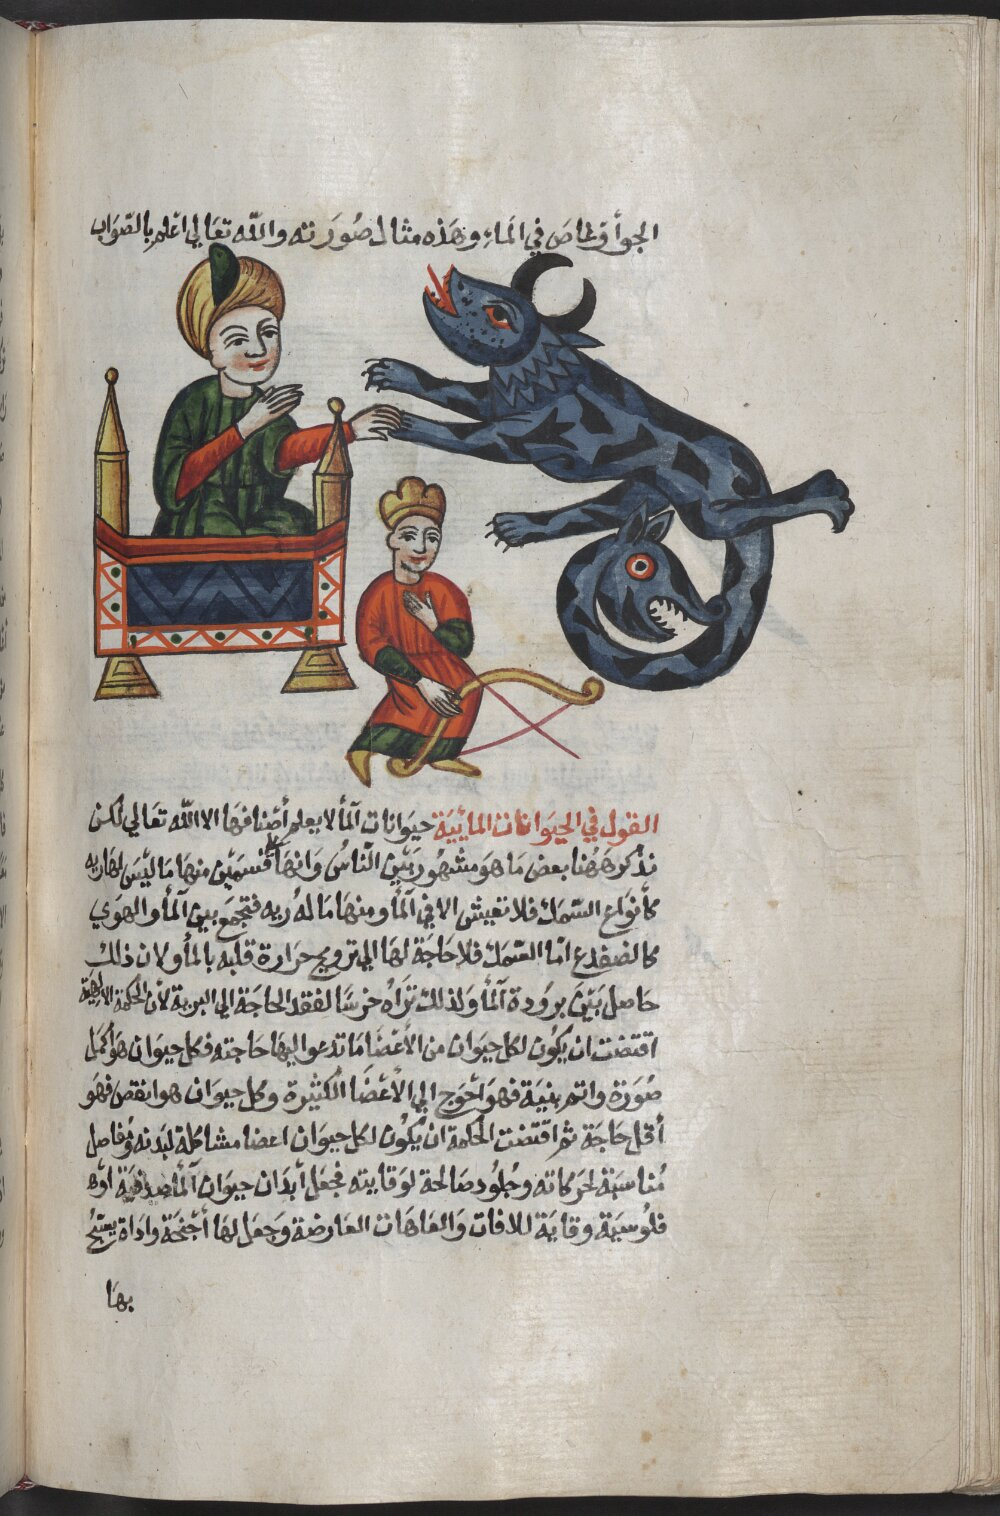 الجو أو غاص في الماء وهذه مثال صورته والله تعالي اعلم بالصواب
القول في الحيوانات المائيية حيوانات آلمأ لا يعلم أصنافها الا الله تعالي لكن
نذكر ههنا بعض ما هو مشهور بين الناس وانها علي قسمين منها ما ليس لها ريه
كأنواع السمك فلا تعيش الا في آلمأ ومنها ما له ريه فتجمع بين آلمأ والهوي
كالضفدع اما السمك فلا حاجة لها الي ترويح حرارة قلبه بالمأ ولان ذلك
حاصل بين برودة آلمأ ولذلك تراه خرسا لفقد الحاجة الي الرية لأن الحكمة الالهية
اقتضت ان يكون لكل حيوان من الأعضا ما تدعوا اليها حاجته فكل حيوان هو أكمل
صورة واتم بنية فهو أحوج الي الأعضا الكثيرة وكل حيوان هو انقص فهو
أقل حاجة ثم اقتضت الحكمة ان يكون لكل حيوان اعضا مشاكلة لبدنه ومفاصل
مناسبة لحركاته وجلود صالحة لوقايته فجعل أبدان حيوان آلمأ صدفية أو
فلوسية وقاية للافات والعاهات العارضة وجعل لها أجنحة واداة يسبح
بها